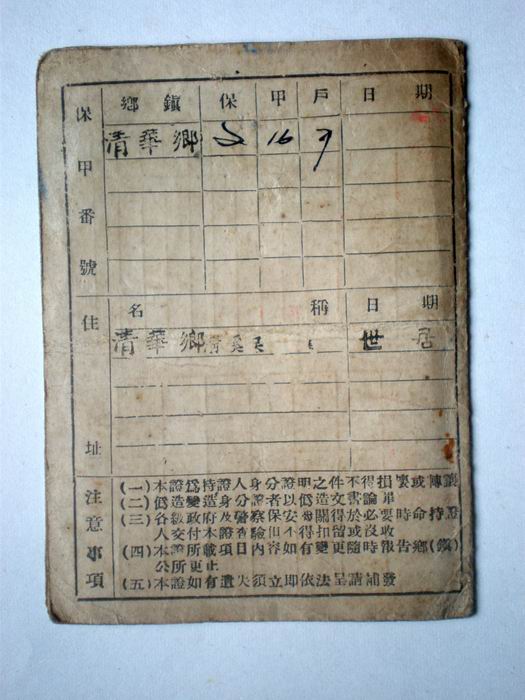 保甲番號
鄉鎮 保 甲 戶 日期
清華鄉 16 9
住址
名稱 日期
清華鄉 世居
注意事項
(一)本證為持證人身分證明之件不得損裏或轉讓
(二)偽造變造身分證者以偽造文書論罪
(三)各級政府及警察保安機關得於必要時命持證
人交付本證查驗但不得扣留或沒收
(四)本證所載項目內容如有變更隨時報告鄉(鎮)
公所更正
(五)本證如有遺失須立即依法呈請補發